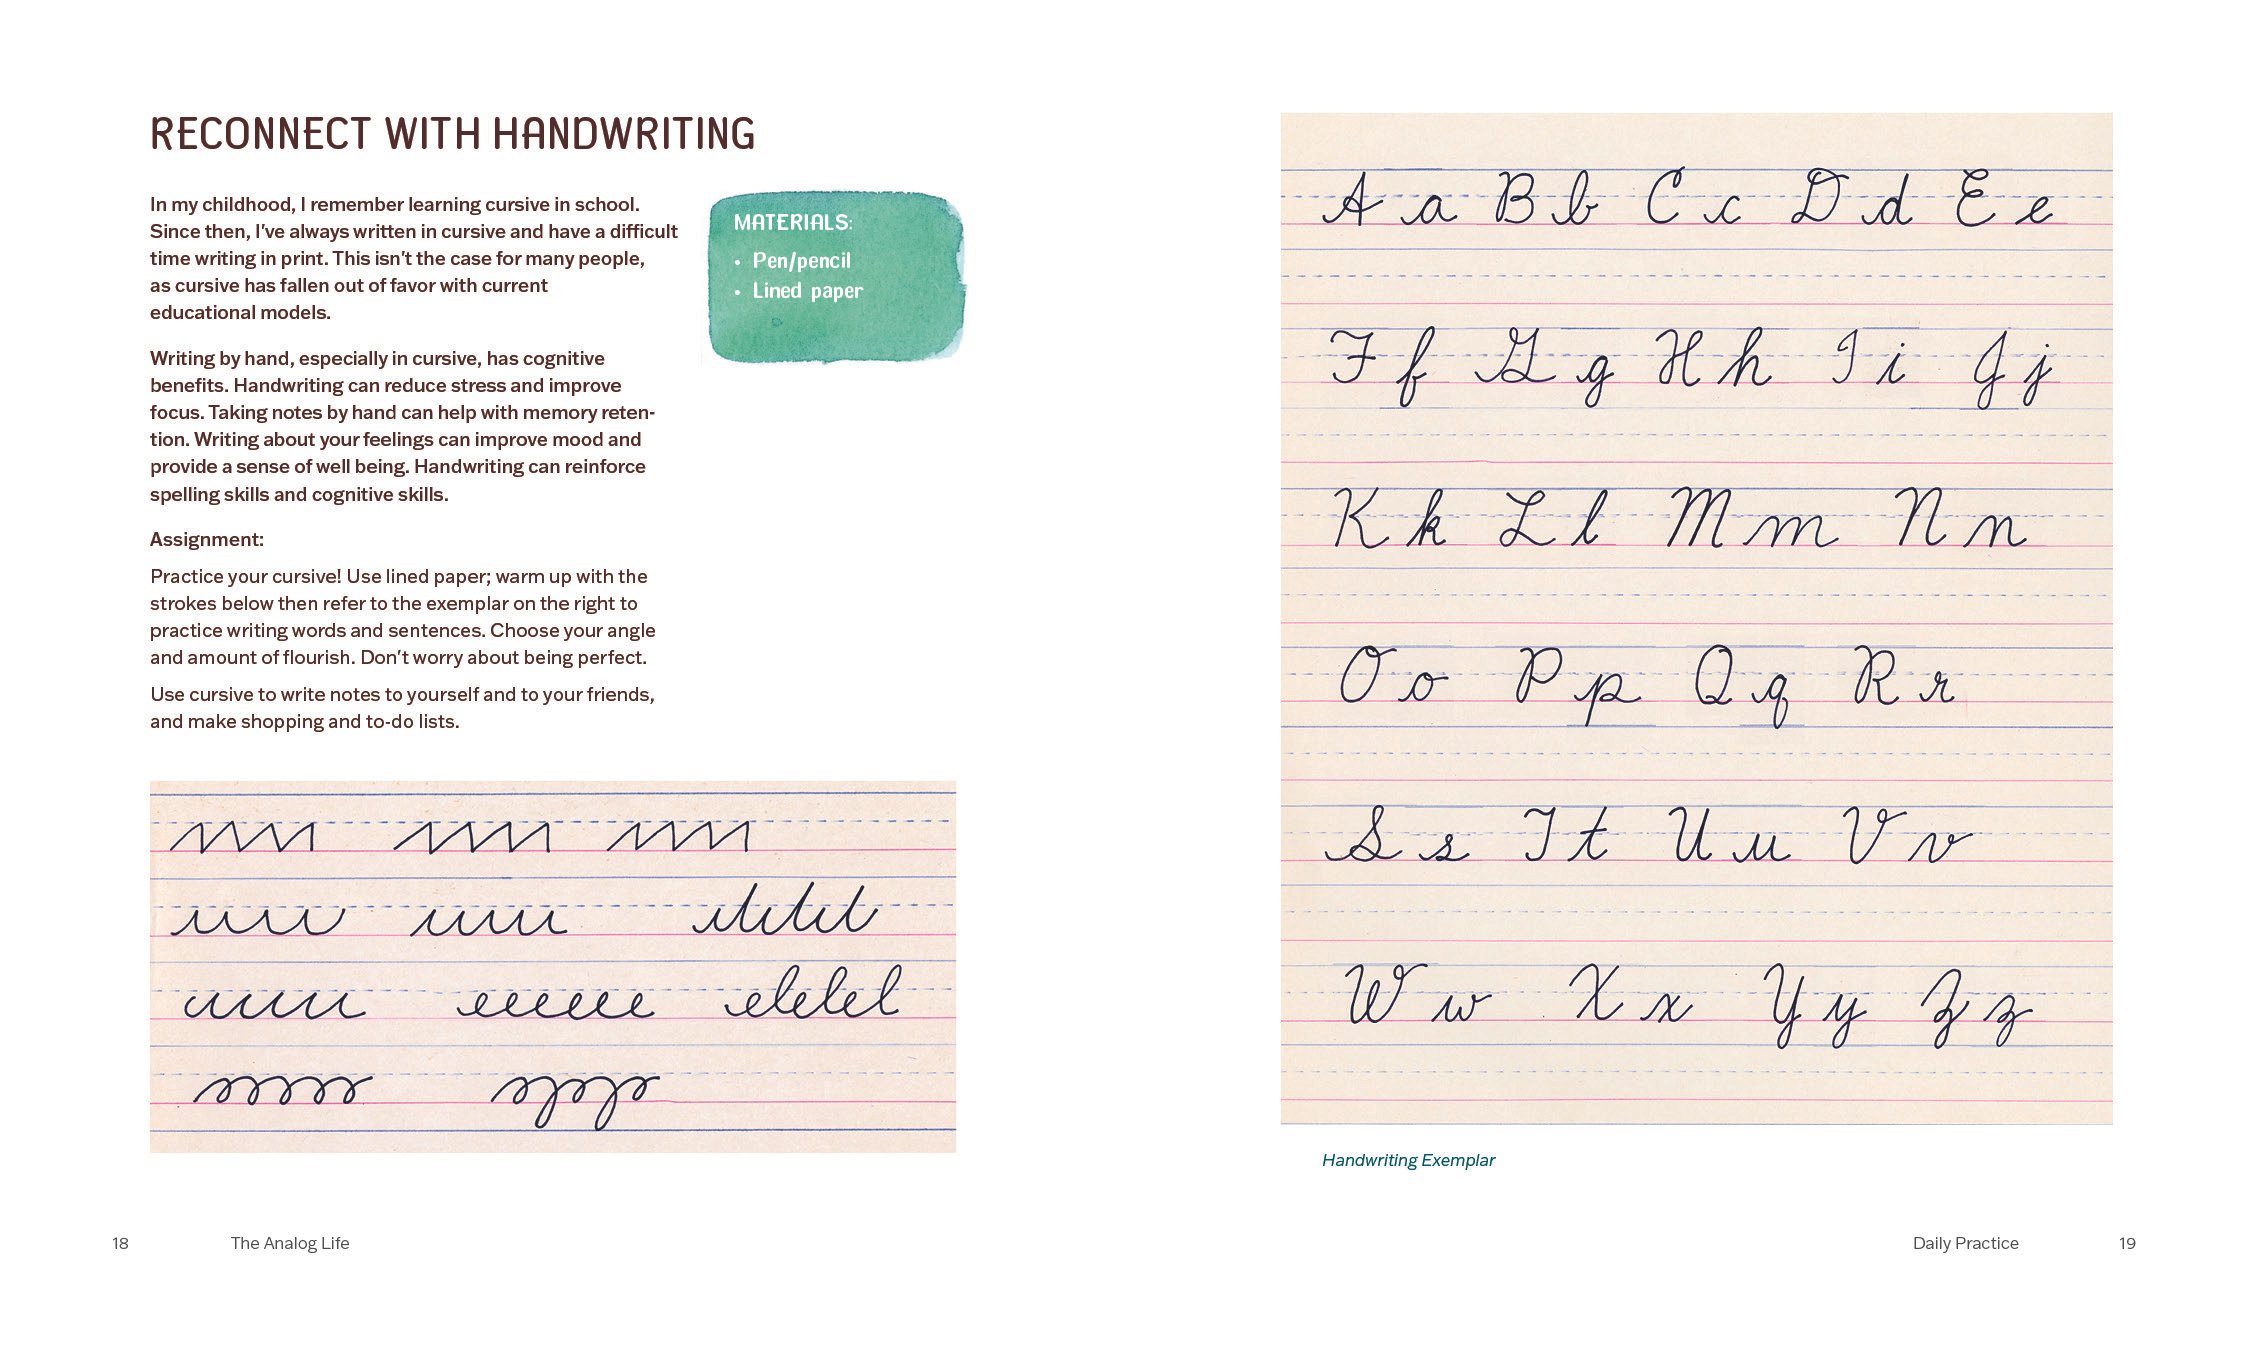 RECONNECT WITH HANDWRITING
In my childhood, I remember learning cursive in school.
Since then, I've always written in cursive and have a difficult
time writing in print. This isn't the case for many people,
as cursive has fallen out of favor with current
educational models.
Writing by hand, especially in cursive, has cognitive
benefits. Handwriting can reduce stress and improve
focus. Taking notes by hand can help with memory reten-
tion. Writing about your feelings can improve mood and
provide a sense of well being. Handwriting can reinforce
spelling skills and cognitive skills.
Assignment:
Practice your cursive! Use lined paper; warm up with the
strokes below then refer to the exemplar on the right to
practice writing words and sentences. Choose your angle
and amount of flourish. Don't worry about being perfect.
Use cursive to write notes to yourself and to your friends,
and make shopping and to-do lists.
MATERIALS:
• Pen/pencil
• Lined paper
18 The Analog Life
A a B b C c D d E e
F f G g H h I i J j
K k L l M m N n
O o P p Q q R r
S s T t U u V v
W w X x Y y Z z
Handwriting Exemplar
Daily Practice 19